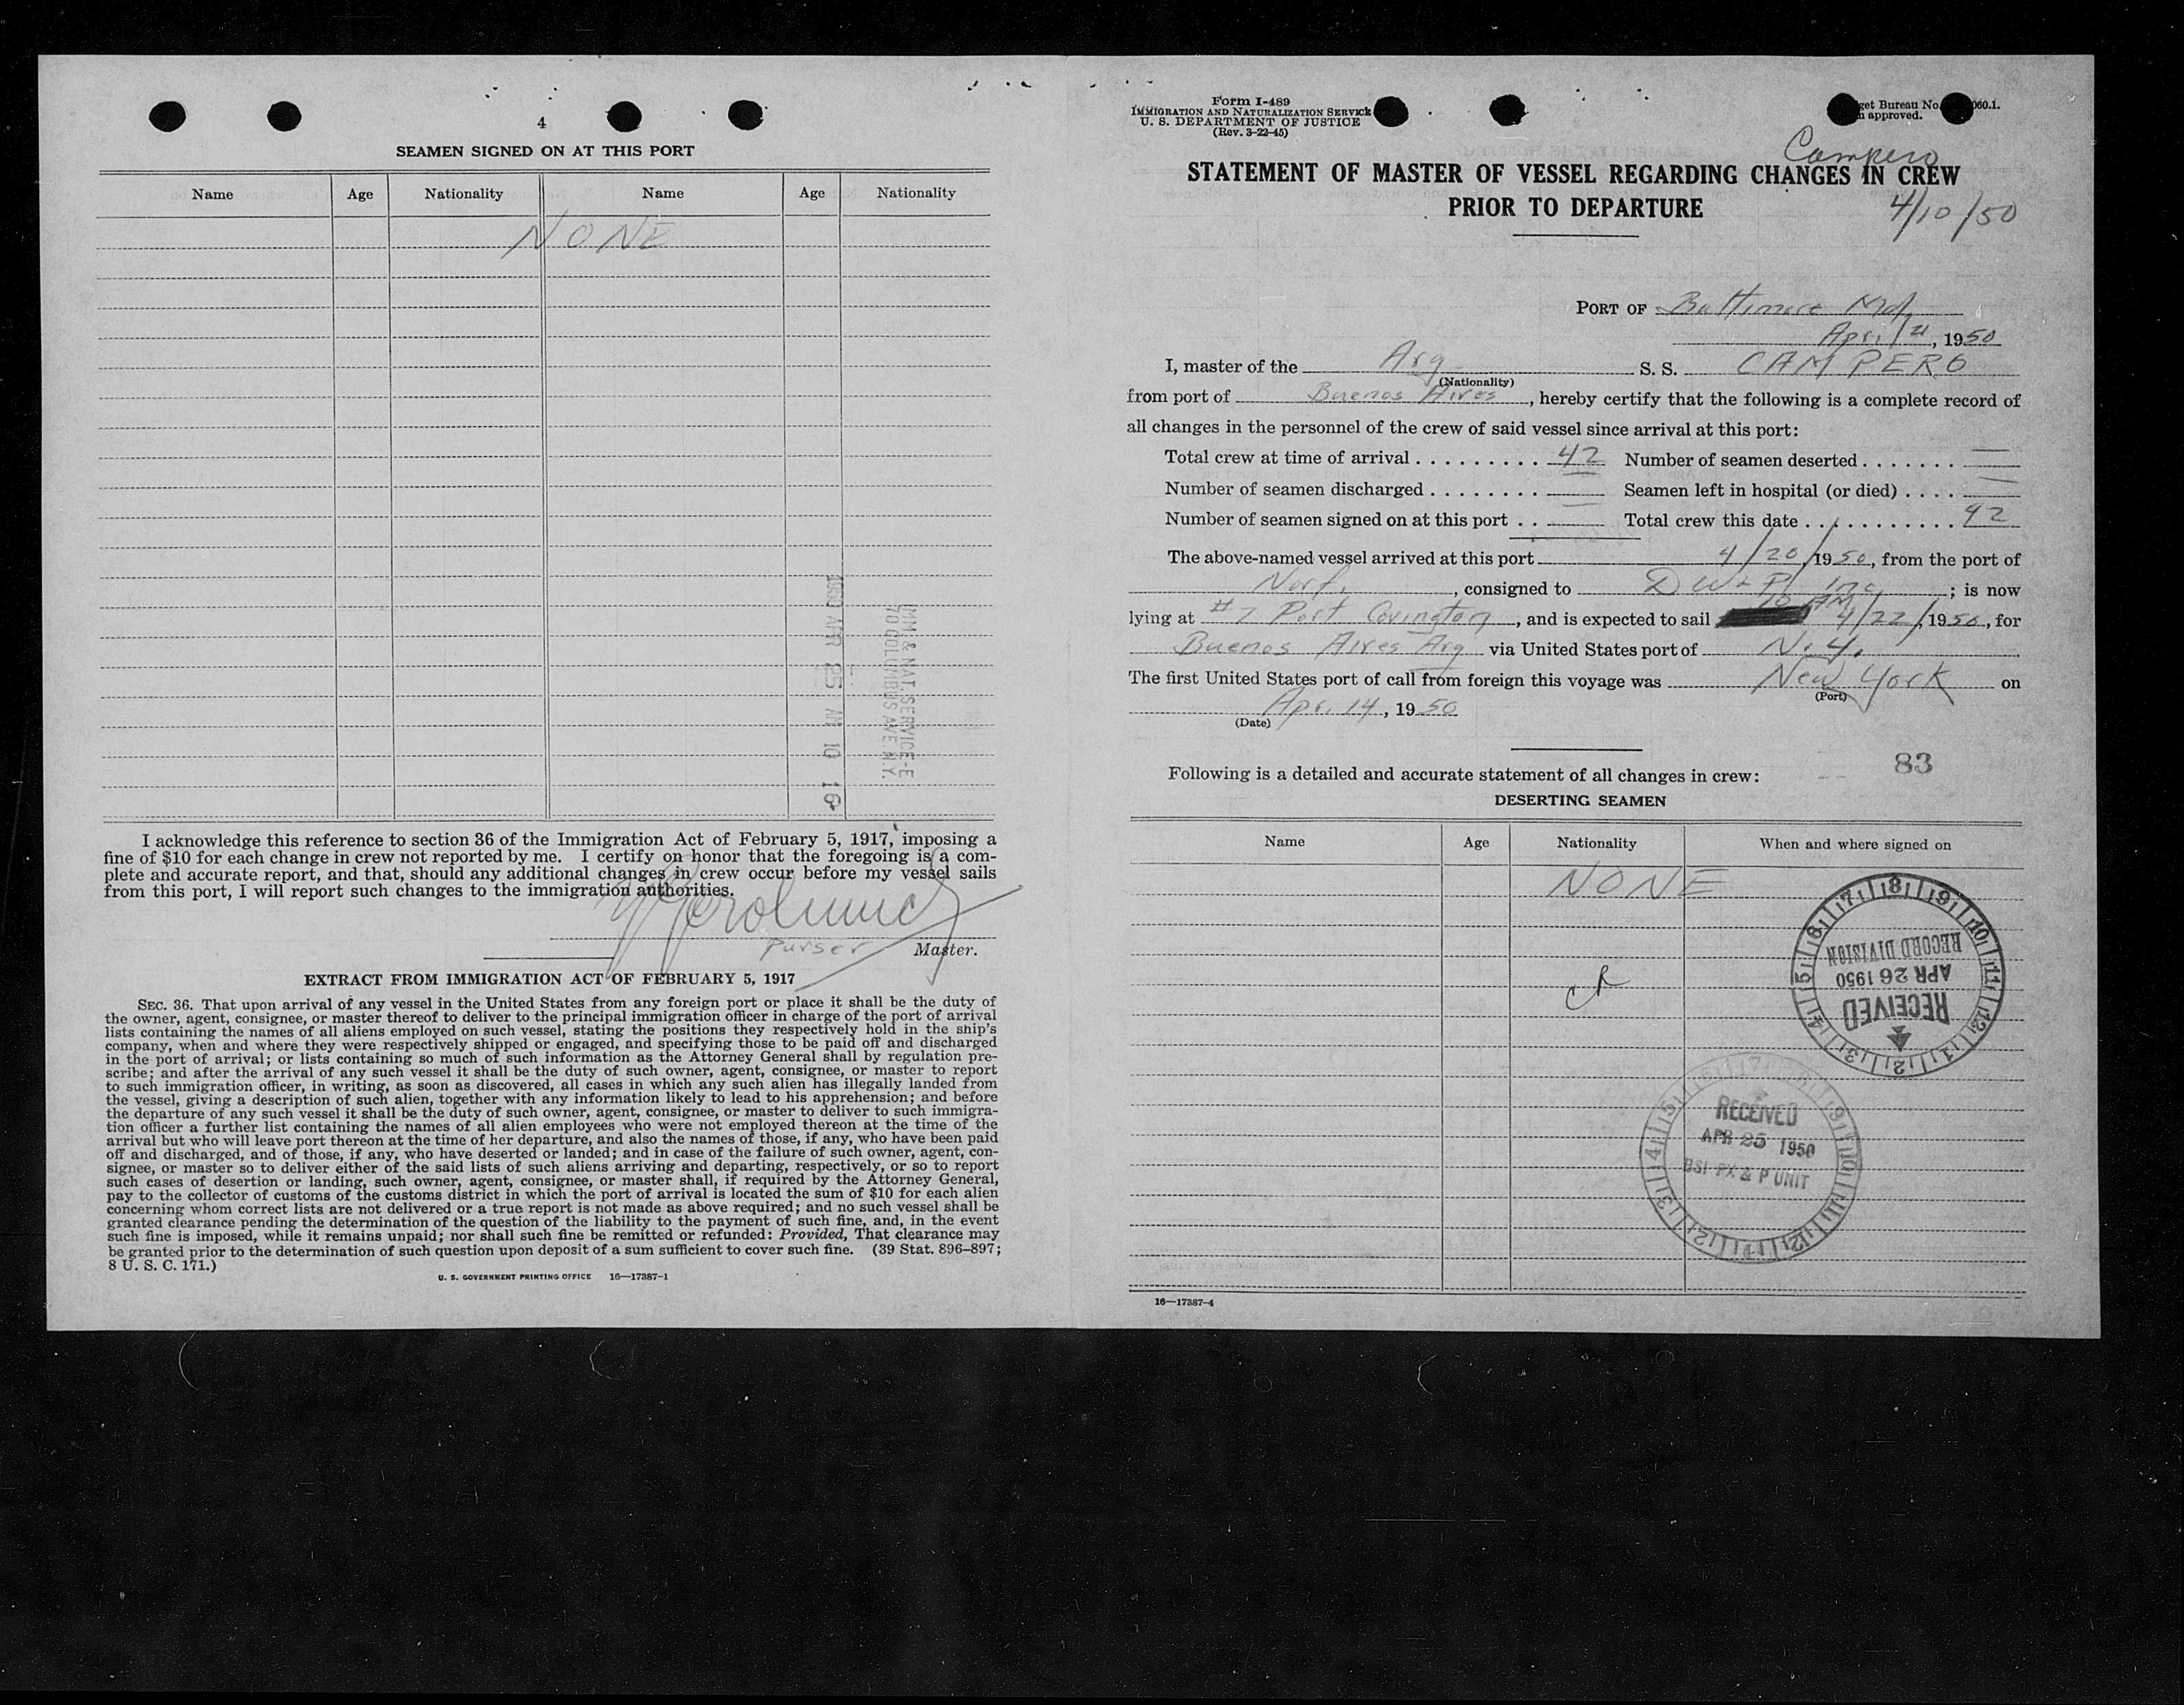 4
SEAMEN SIGNED ON AT THIS PORT
Name Age Nationality Name Age Nationality
NONE
1950 APR 25 AM 10 16
IMM. & NAT. SERVICE-E
70 COLUMBUS AVE N.Y.
I acknowledge this reference to section 36 of the Immigration Act of February 5, 1917, imposing a
fine of $10 for each change in crew not reported by me. I certify on honor that the foregoing is a com-
plete and accurate report, and that, should any additional changes in crew occur before my vessel sails
from this port, I will report such changes to the immigration authorities.
Purser Master.
EXTRACT FROM IMMIGRATION ACT OF FEBRUARY 5, 1917
SEC. 36. That upon arrival of any vessel in the United States from any foreign port or place it shall be the duty of
the owner, agent, consignee, or master thereof to deliver to the principal immigration officer in charge of the port of arrival
lists containing the names of all aliens employed on such vessel, stating the positions they respectively hold in the ship's
company, when and where they were respectively shipped or engaged, and specifying those to be paid off and discharged
in the port of arrival; or lists containing so much of such information as the Attorney General shall by regulation pre-
scribe; and after the arrival of any such vessel it shall be the duty of such owner, agent, consignee, or master to report
to such immigration officer, in writing, as soon as discovered, all cases in which any such alien has illegally landed from
the vessel, giving a description of such alien, together with any information likely to lead to his apprehension; and before
the departure of any such vessel it shall be the duty of such owner, agent, consignee, or master to deliver to such immigra-
tion officer a further list containing the names of all alien employees who were not employed thereon at the time of the
arrival but who will leave port thereon at the time of her departure, and also the names of those, if any, who have been paid
off and discharged, and of those, if any, who have deserted or landed; and in case of the failure of such owner, agent, con-
signee, or master so to deliver either of the said lists of such aliens arriving and departing, respectively, or so to report
such cases of desertion or landing, such owner, agent, consignee, or master shall, if required by the Attorney General,
pay to the collector of customs of the customs district in which the port of arrival is located the sum of $10 for each alien
concerning whom correct lists are not delivered or a true report is not made as above required; and no such vessel shall be
granted clearance pending the determination of the question of the liability to the payment of such fine, and, in the event
such fine is imposed, while it remains unpaid; nor shall such fine be remitted or refunded: Provided, That clearance may
be granted prior to the determination of such question upon deposit of a sum sufficient to cover such fine. (39 Stat. 896–897;
8 U. S. C. 171.)
U. S. GOVERNMENT PRINTING OFFICE 16—17387-1
Form I-489
IMMIGRATION AND NATURALIZATION SERVICE
U. S. DEPARTMENT OF JUSTICE
(Rev. 3-22-45)
get Bureau No. 060.1.
approved.
Campero
STATEMENT OF MASTER OF VESSEL REGARDING CHANGES IN CREW
PRIOR TO DEPARTURE
4/10/50
PORT OF Baltimore Md
April 21, 1950
I, master of the Arg S. S. CAMPERO
(Nationality)
from port of Buenos Aires, hereby certify that the following is a complete record of
all changes in the personnel of the crew of said vessel since arrival at this port:
Total crew at time of arrival . . . . . . . . . 42 Number of seamen deserted . . . . . . . —
Number of seamen discharged . . . . . . . . — Seamen left in hospital (or died) . . . . —
Number of seamen signed on at this port . . — Total crew this date . . . . . . . . . . . 42
The above-named vessel arrived at this port 4/20/1950, from the port of
Norf., consigned to D W & P Inc; is now
lying at #7 Port Covington, and is expected to sail 10 AM 4/22/1950, for
Buenos Aires Arg via United States port of N.Y.
The first United States port of call from foreign this voyage was New York on
(Port)
Apr. 14, 1950
(Date)
83
Following is a detailed and accurate statement of all changes in crew:
DESERTING SEAMEN
Name Age Nationality When and where signed on
NONE
RECEIVED
APR 26 1950
RECORD DIVISION
RECEIVED
APR 25 1950
BSI PX & P UNIT
16—17387-4